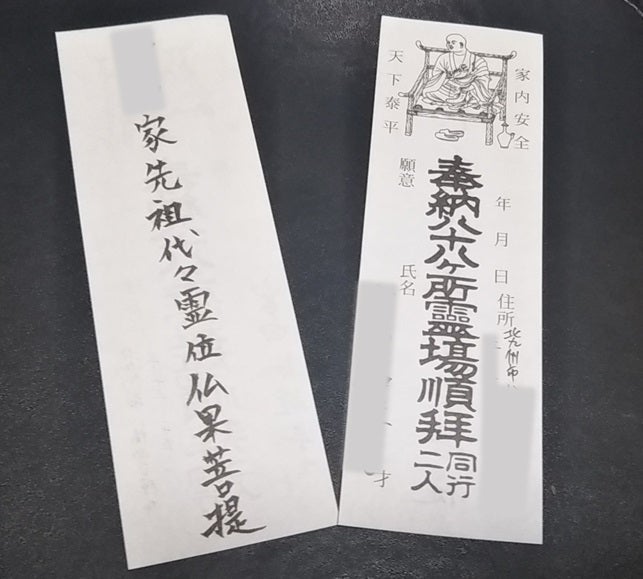 家先祖代々霊位仏果菩提
家内安全
年月日住所北九州市
奉納八十八ヶ所霊場順拝同行二人
天下泰平
願意
氏名
才